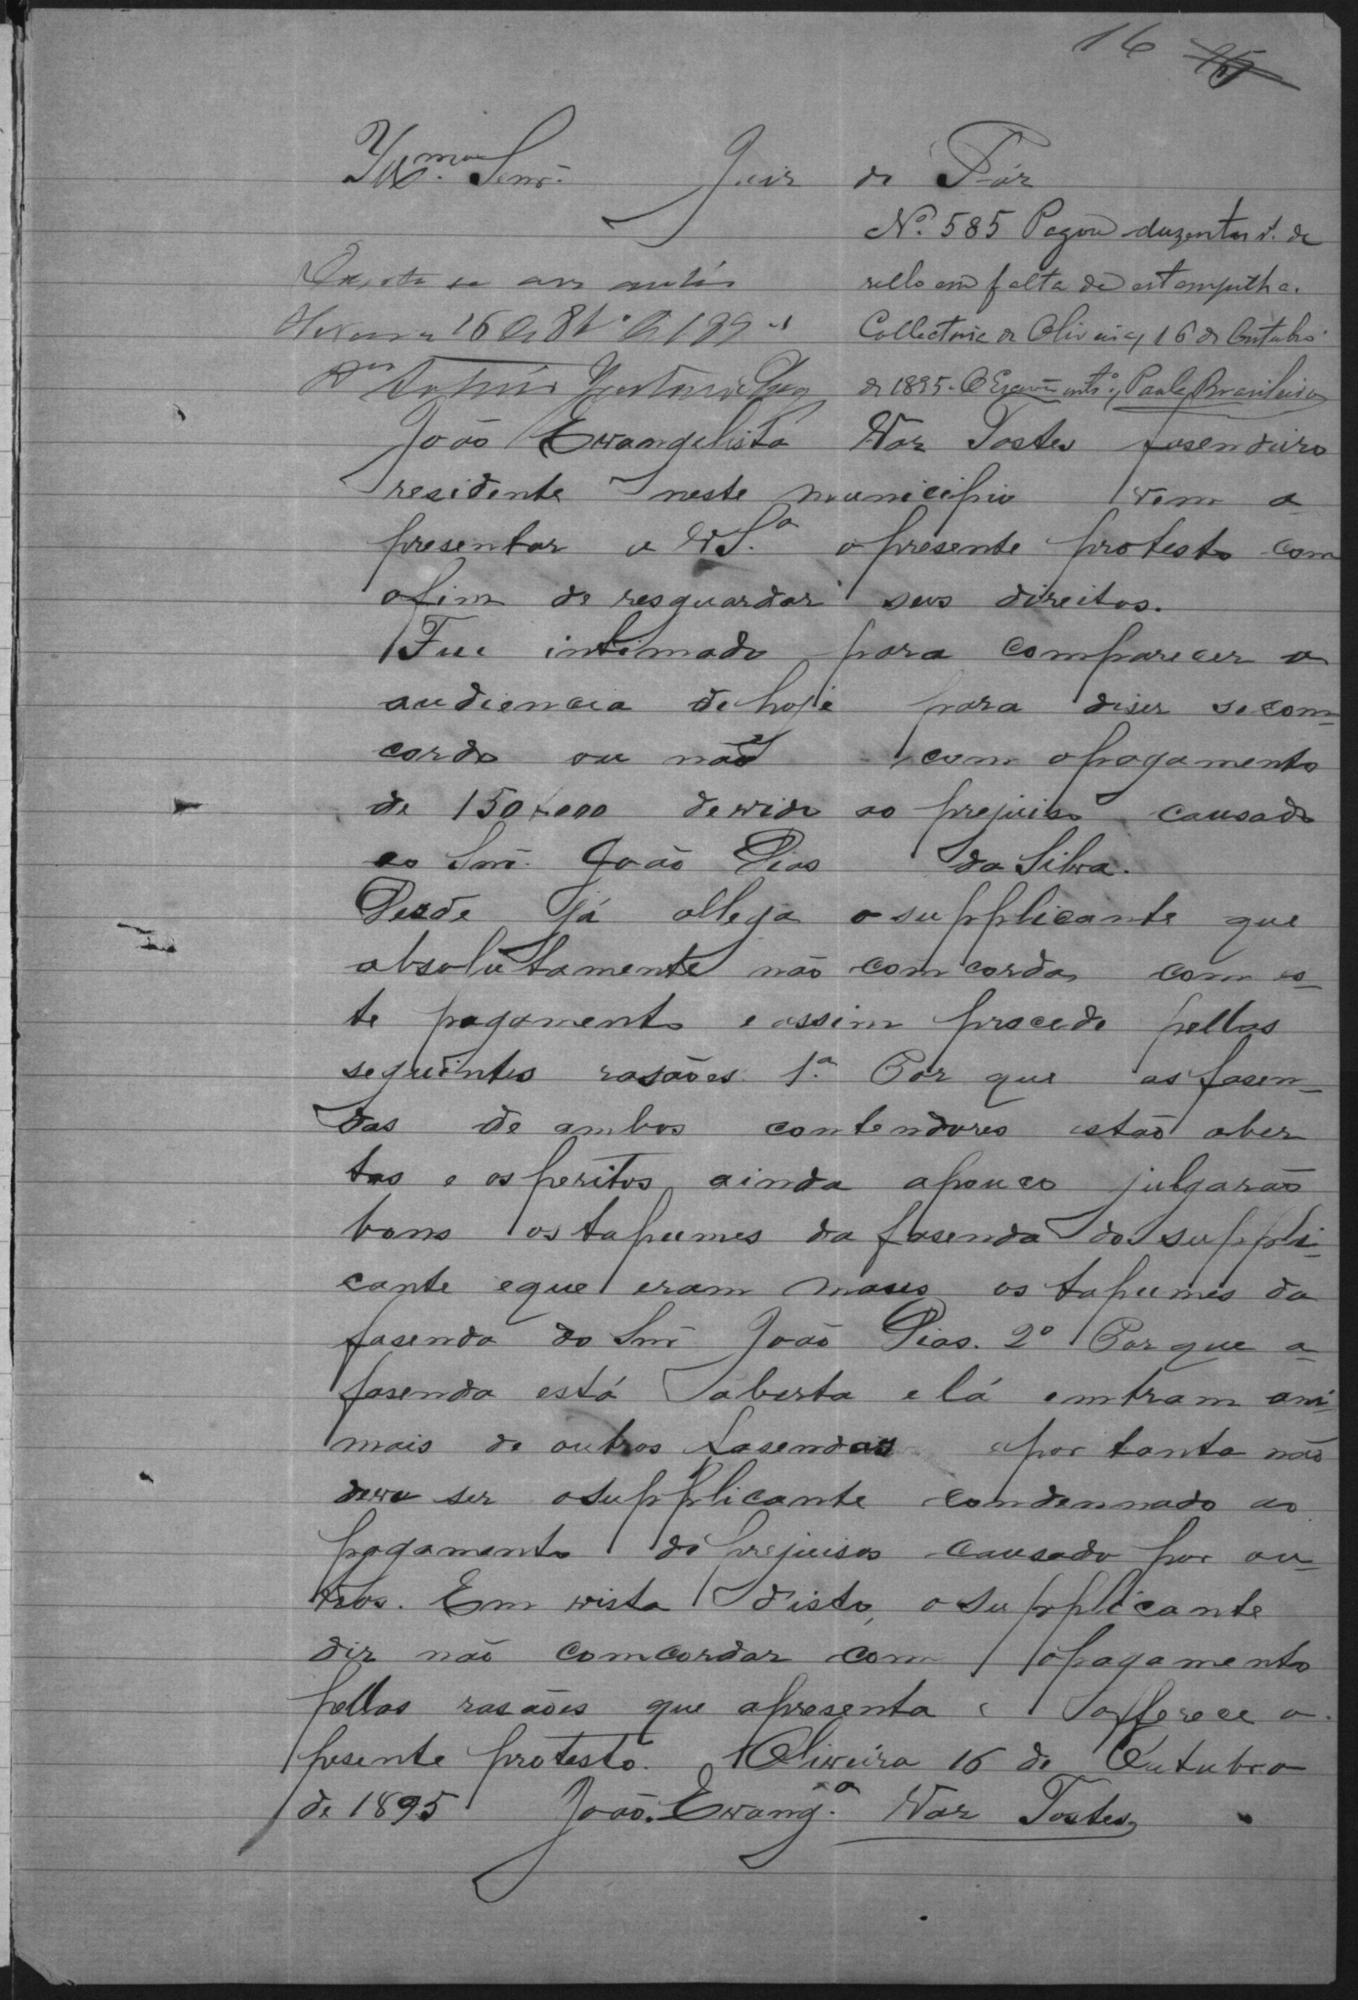 16
Illm.º Senr. Juiz de Páz
Nº 585 Pagou duzentos rs. de
sello em falta de estampilha.
Collectoria de Oliveira, 16 de Outubro
de 1895. O Escrivão int.º, Paula Brasileiro
Junte-se aos autos
16 de 8br.º de 189
João Evangelista Vaz Tostes fasendeiro
residente neste municipio vem a
presentar a V S.ª o presente protesto com
o fim de resguardar seus direitos.
Fui intimado para comparecer a
audiencia de hoje para diser se con-
cordo ou não com o pagamento
de 150$000 devido ao prejuiso causado
ao Snr. João Dias da Silva.
Desde já allega o supplicante que
absolutamente não comcorda com es-
te pagamento e assim procede pellas
seguintes rasões. 1.ª Por que as fasen-
das de ambos contendores estão aber
tas e os peritos ainda apouco julgarão
bons os tapumes da fasenda do suppli-
cante e que eram maus os tapumes da
fasenda do Snr João Dias. 2º Por que a
fasenda está aberta e lá emtram ani-
mais de outros fasendas e por tanto não
deve ser o supplicante condennado ao
pagamento do prejuisos causado por ou-
tros. Em vista disto, o supplicante
diz não comcordar com o pagamento
pellas rasões que apresenta e offerece o
pesente protesto. Oliveira 16 de Outubro
de 1895 João Evang.ª Vaz Tostes